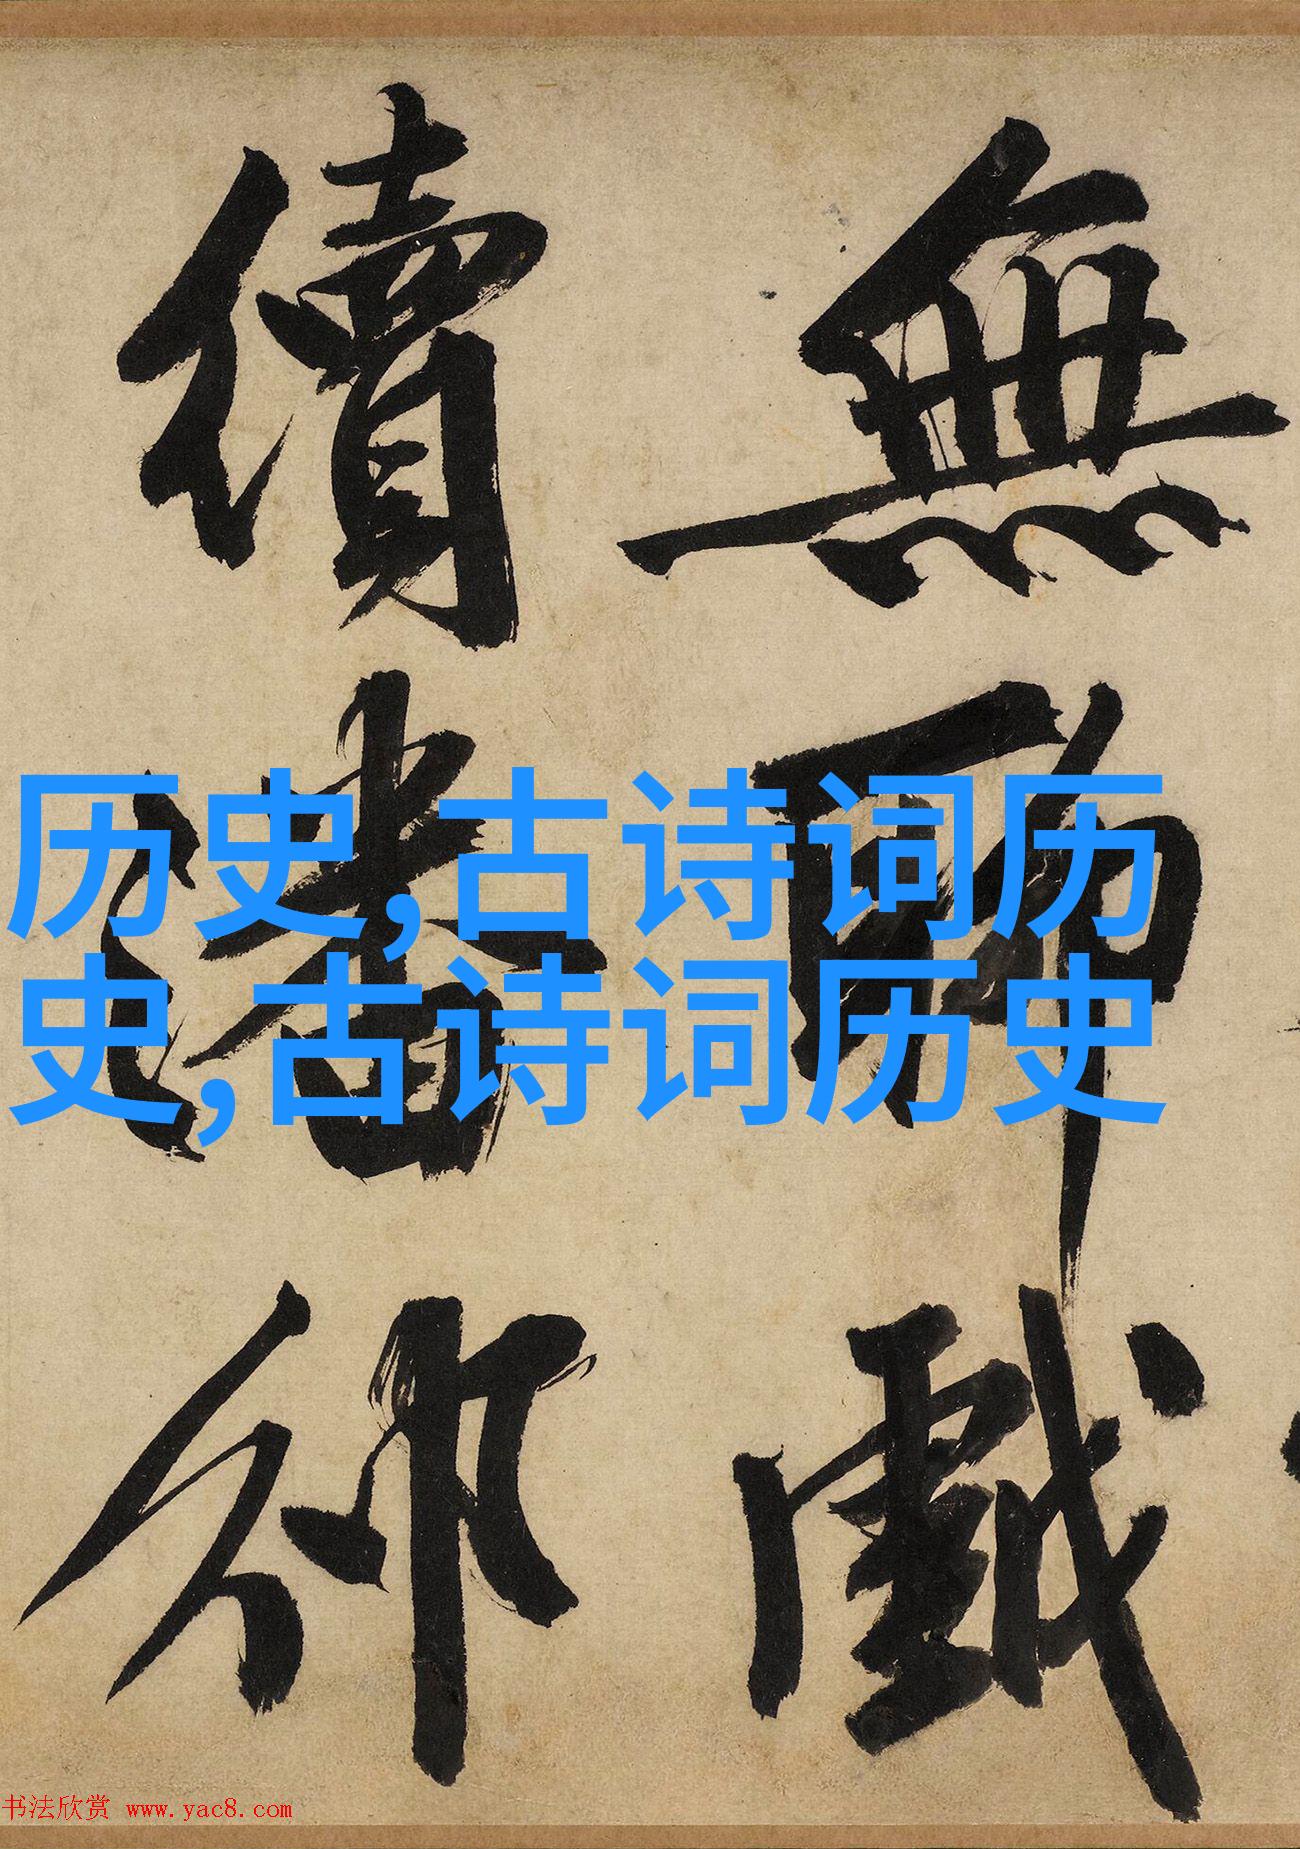 無聊戲
續潘邠
历史,古诗词历
史,古诗词历史
书法欣赏 www.yac8.com